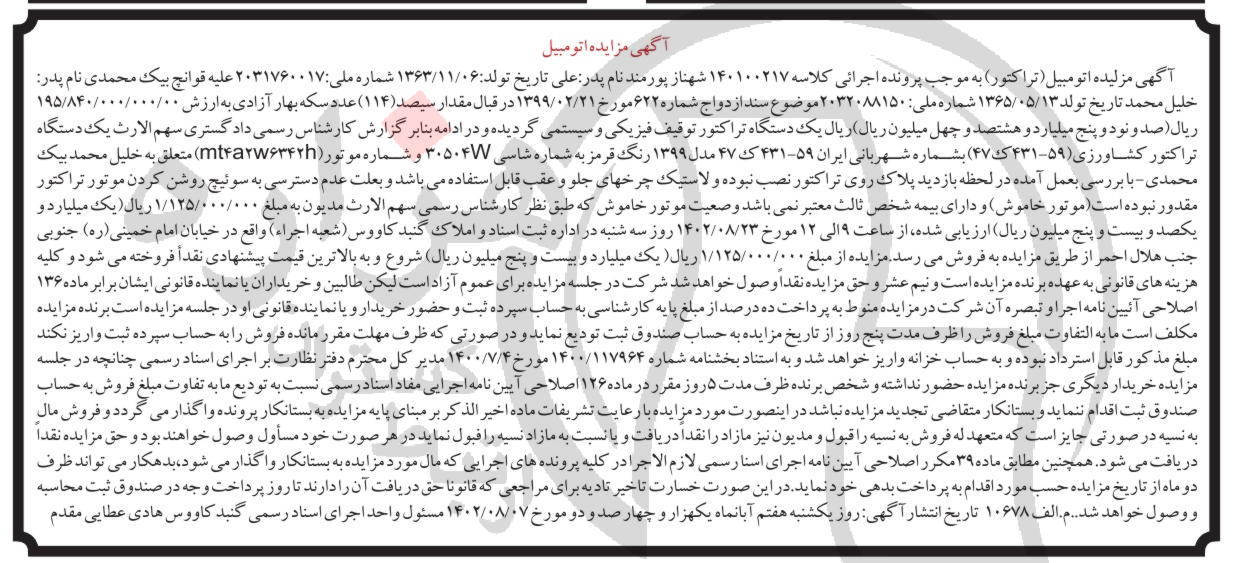 آگهی مزایده اتومبیل
آگهی مزلیده اتومبیل(تراکتور) به موجب پرونده اجرائی کلاسه ۱۴۰۱۰۰۲۱۷ شهناز پورمند نام پدر:علی تاریخ تولد:۱۳۶۳/۱۱/۰۶ شماره ملی:۲۰۳۱۷۶۰۰۱۷ علیه قوانچ بیک محمدی نام پدر:
خلیل محمد تاریخ تولد ۱۳۶۵/۰۵/۱۳ شماره ملی: ۲۰۳۲۰۸۸۱۵۰ موضوع سند ازدواج شماره ۶۲۲ مورخ ۱۳۹۹/۰۲/۲۱ در قبال مقدار سیصد (۱۱۴) عدد سکه بهار آزادی به ارزش ۱۹۵/۸۴۰/۰۰۰/۰۰۰/۰۰
ریال (صد و نود و پنج میلیارد و هشتصد و چهل میلیون ریال) ریال یک دستگاه تراکتور توقیف فیزیکی و سیستمی گردیده و در ادامه بنابر گزارش کارشناس رسمی دادگستری سهم الارث یک دستگاه
تراکتور کشاورزی (۵۹-۴۳۱ک۴۷) بشماره شهربانی ایران ۵۹-۴۳۱ ک ۴۷ مدل ۱۳۹۹ رنگ قرمز به شماره شاسی ۳۰۵۰۴W و شماره موتور (mt۴a۲w۶۳۴۲h) متعلق به خلیل محمد بیک
محمدی-با بررسی بعمل آمده در لحظه بازدید پلاک روی تراکتور نصب نبوده و لاستیک چرخهای جلو و عقب قابل استفاده می باشد و بعلت عدم دسترسی به سوئیچ روشن کردن موتور تراکتور
مقدور نبوده است(موتور خاموش) و دارای بیمه شخص ثالث معتبر نمی باشد وضعیت موتور خاموش که طبق نظر کارشناس رسمی سهم الارث مدیون به مبلغ ۱/۱۲۵/۰۰۰/۰۰۰ ریال (یک میلیارد و
یکصد و بیست و پنج میلیون ریال) ارزیابی شده، از ساعت ۹ الی ۱۲ مورخ ۱۴۰۲/۰۸/۲۳ روز سه شنبه در اداره ثبت اسناد و املاک گنبد کاووس(شعبه اجراء) واقع در خیابان امام خمینی(ره) جنوبی
جنب هلال احمر از طریق مزایده به فروش می رسد.مزایده از مبلغ ۱/۱۲۵/۰۰۰/۰۰۰ ریال( یک میلیارد و بیست و پنج میلیون ریال) شروع و به بالاترین قیمت پیشنهادی نقدأ فروخته می شود و کلیه
هزینه های قانونی به عهده برنده مزایده است و نیم عشر و حق مزایده نقدأ وصول خواهد شد شرکت در جلسه مزایده برای عموم آزاد است لیکن طالبین و خریداران یا نماینده قانونی ایشان برابر ماده ۱۳۶
اصلاحی آئین نامه اجرا و تبصره آن شرکت در مزایده منوط به پرداخت ده درصد از مبلغ پایه کارشناسی به حساب سپرده ثبت و حضور خریدار و یا نماینده قانونی او در جلسه مزایده است برنده مزایده
مکلف است مابه التفاوت مبلغ فروش را ظرف مدت پنج روز از تاریخ مزایده به حساب صندوق ثبت تودیع نماید و در صورتی که ظرف مهلت مقرر مانده فروش را به حساب سپرده ثبت واریز نکند
مبلغ مذکور قابل استرداد نبوده و به حساب خزانه واریز خواهد شد و به استناد بخشنامه شماره ۱۴۰۰/۱۱۷۹۶۴ مورخ ۱۴۰۰/۷/۴ مدیر کل محترم دفتر نظارت بر اجرای اسناد رسمی چنانچه در جلسه
مزایده خریدار دیگری جز برنده مزایده حضور نداشته و شخص برنده ظرف مدت ۵ روز مقرر در ماده ۱۲۶ اصلاحی آیین نامه اجرایی مفاد اسناد رسمی نسبت به تودیع مابه تفاوت مبلغ فروش به حساب
صندوق ثبت اقدام ننماید و بستانکار متقاضی تجدید مزایده نباشد در اینصورت مورد مزایده با رعایت تشریفات ماده اخیر الذکر بر مبنای پایه مزایده به بستانکار پرونده واگذار می گردد و فروش مال
به نسیه در صورتی جایز است که متعهد له فروش به نسیه را قبول و مدیون نیز مازاد را نقدأ دریافت و یا نسبت به مازاد نسیه را قبول نماید در هر صورت خود مسأول وصول خواهند بود و حق مزایده نقدأ
دریافت می شود. همچنین مطابق ماده ۳۹ مکرر اصلاحی آیین نامه اجرای اسنا رسمی لازم الاجرا در کلیه پرونده های اجرایی که مال مورد مزایده به بستانکار واگذار می شود،بدهکار می تواند ظرف
دو ماه از تاریخ مزایده حسب مورد اقدام به پرداخت بدهی خود نماید.در این صورت خسارت تاخیر تادیه برای مراجعی که قانونا حق دریافت آن را دارند تا روز پرداخت وجه در صندوق ثبت محاسبه
و وصول خواهد شد..م.الف ۱۰۶۷۸ تاریخ انتشار آگهی: روز یکشنبه هفتم آبانماه یکهزار و چهار صد و دو مورخ ۱۴۰۲/۰۸/۰۷ مسئول واحد اجرای اسناد رسمی گنبد کاووس هادی عطایی مقدم